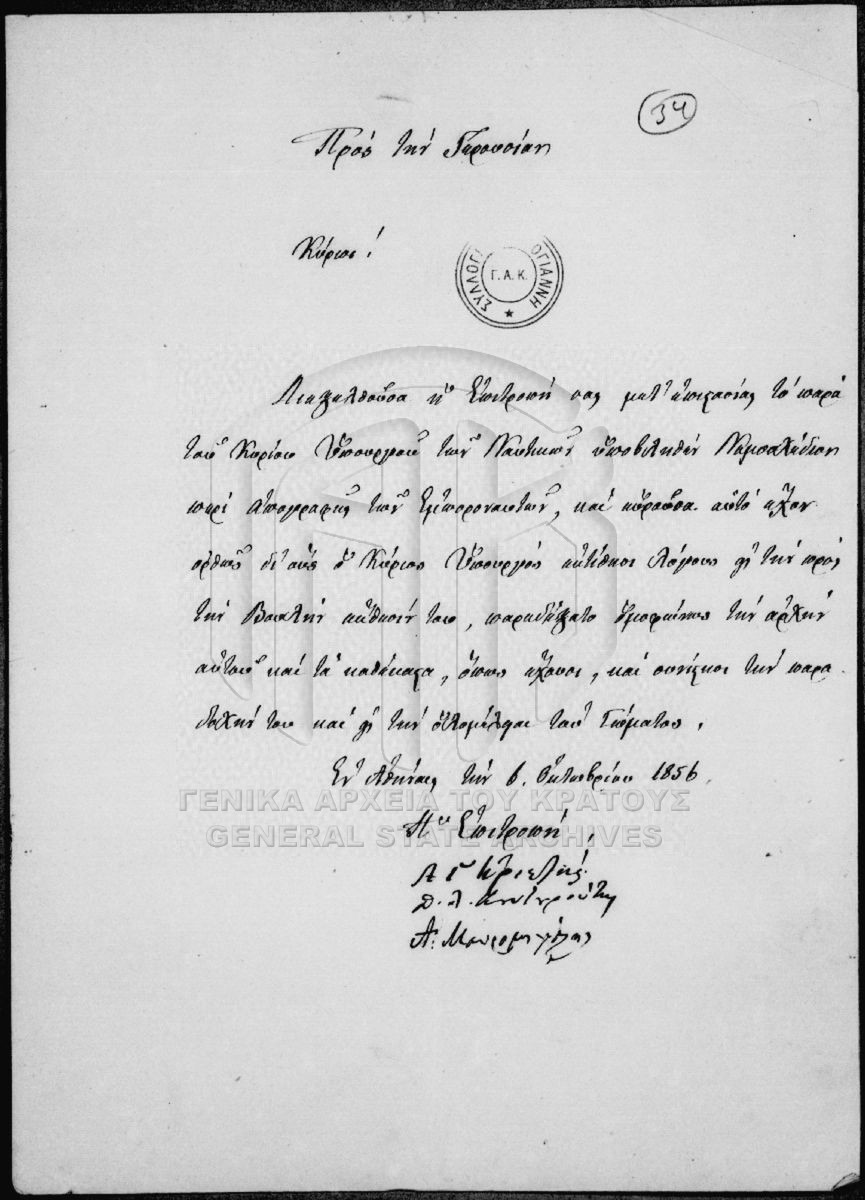 34
Πρὸς τὴν Γερουσίαν
Κύριοι!
ΣΥΛΛΟΓ ΟΓΙΑΝΝΗ
Γ.Α.Κ.
Διεξελθοῦσα ἡ Ἐπιτροπή σας μετ' ἐπιστασίας τὸ παρὰ
τοῦ Κυρίου Ὑπουργοῦ τῶν Ναυτικῶν ὑποβληθὲν Νομοσχέδιον
περὶ ἀπογραφῆς τῶν Ἐμποροναυτῶν, καὶ εὑροῦσα αὐτὸ ἔχον
ὀρθῶς δι' οὓς ὁ Κύριος Ὑπουργὸς ἐκτίθησι λόγους εἰς τὴν πρὸς
τὴν Βουλὴν ἔκθεσίν του, παρεδέξατο ὁμοφώνως τὴν ἀρχὴν
αὐτοῦ καὶ τὰ καθέκαστα, ὅπως ἔχουσι, καὶ συνίστησι τὴν παρα
δοχήν του καὶ εἰς τὴν ὁλομέλειαν τοῦ Σώματος.
Ἐν Ἀθήναις τὴν 6. Ὀκτωβρίου 1856.
Ἡ Ἐπιτροπή,
Α Γ Κριεζής
ΓΕΝΙΚΑ ΑΡΧΕΙΑ ΤΟΥ ΚΡΑΤΟΥΣ
GENERAL STATE ARCHIVES